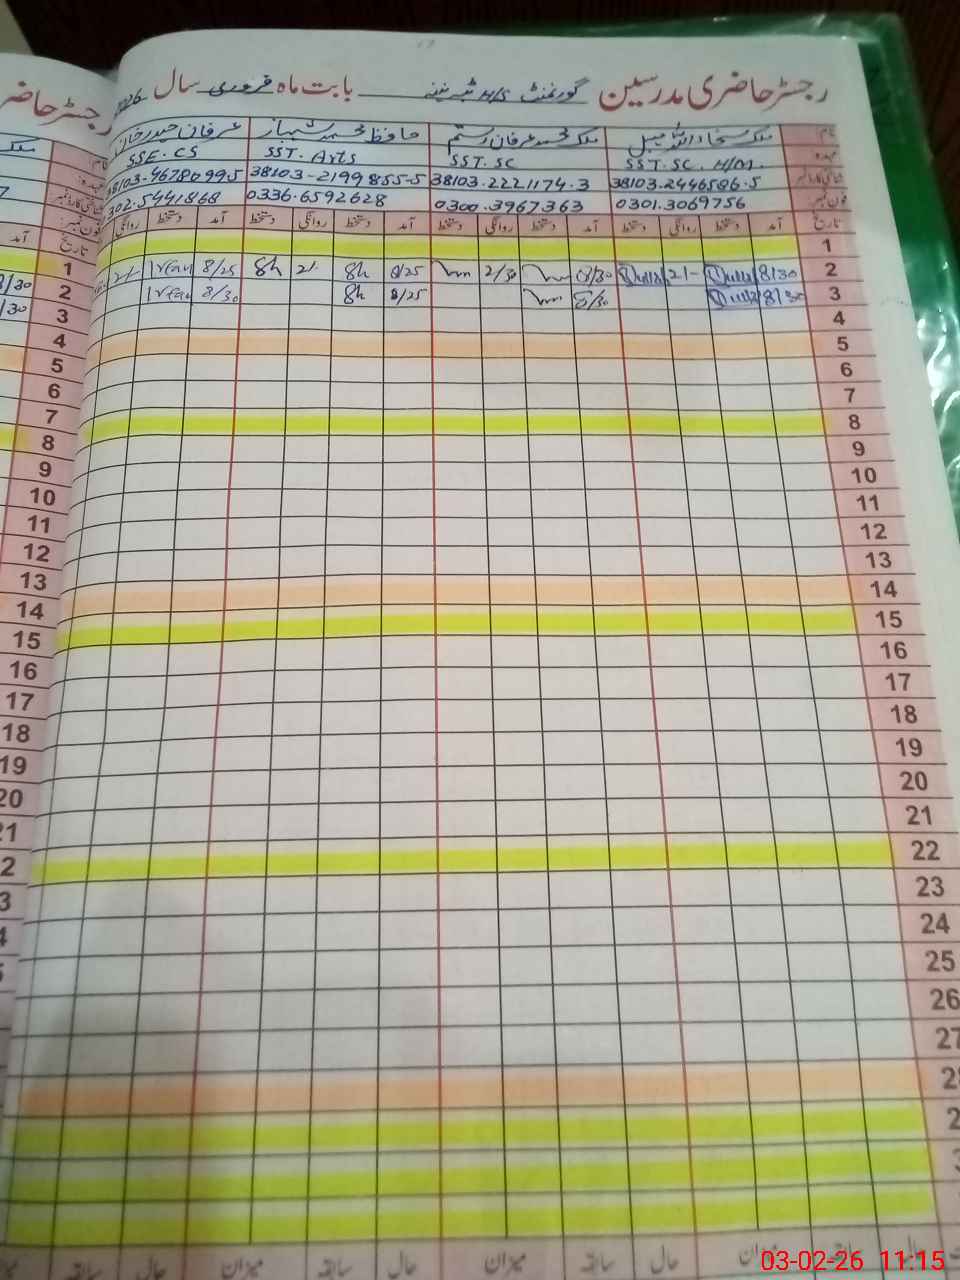 رجسٹر حاضری مدرسین گورنمنٹ H/S بابت ماہ فروری سال 2026
رجسٹر حاضری
نام: ملک محمد عرفان رستم حافظ محمد شہباز عرفان حیدر خان
عہدہ SST.SC.H/M. SST.SC SST.Arts SSE.CS
شناختی کارڈ نمبر 38103.2446586.5 38103.2221174.3 38103-2199855-5 38103-4678099.5
فون نمبر 0301.3069756 0300.3967363 0336.6592628 302.5441868
تاریخ آمد دستخط روانگی دستخط آمد دستخط روانگی دستخط آمد دستخط روانگی دستخط آمد دستخط روانگی
1
2 8/30 2/- 8/30 2/30 8/25 Sh 2/- Sh 8/25 Irfan 2/-
3 8/30 8/30 8/25 Sh 8/30 Irfan
4
5
6
7
8
9
10
11
12
13
14
15
16
17
18
19
20
21
22
23
24
25
26
27
حال سابقہ میزان حال سابقہ میزان حال سابقہ میزان حال سابقہ
تاریخ
آمد
1
2
3
4
5
6
7
8
9
10
11
12
13
14
15
16
17
18
19
20
03-02-26 11:15